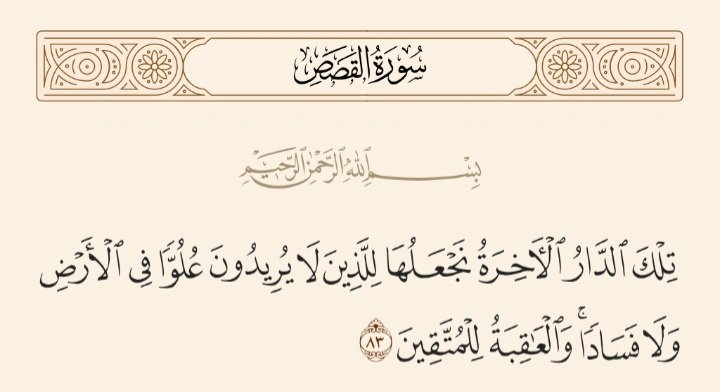 سُورَةُ القَصَصِ
بِسْمِ ٱللَّهِ ٱلرَّحْمَٰنِ ٱلرَّحِيمِ
تِلْكَ ٱلدَّارُ ٱلْأَخِرَةُ نَجْعَلُهَا لِلَّذِينَ لَا يُرِيدُونَ عُلُوًّا فِى ٱلْأَرْضِ
وَلَا فَسَادًا ۚ وَٱلْعَٰقِبَةُ لِلْمُتَّقِينَ ٨٣